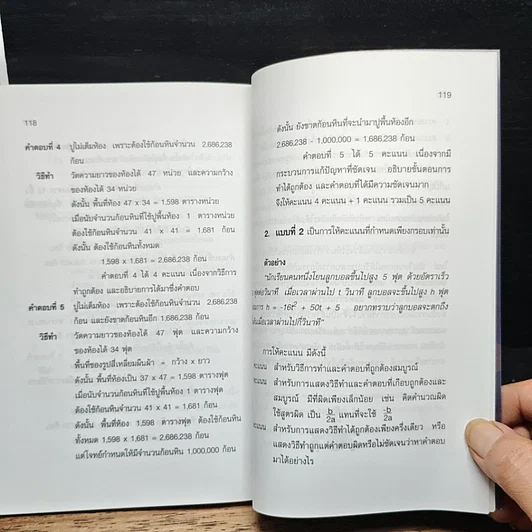 118
คำตอบที่ 4 ปูไม่เต็มห้อง เพราะต้องใช้ก้อนหินจำนวน 2,686,238
ก้อน
วิธีทำ วัดความยาวของห้องได้ 47 หน่วย และความกว้าง
ของห้องได้ 34 หน่วย
ดังนั้น พื้นที่ห้อง 47 x 34 = 1,598 ตารางหน่วย
เมื่อนับจำนวนก้อนหินที่ใช้ปูพื้นห้อง 1 ตารางหน่วย
ต้องใช้ก้อนหินจำนวน 41 x 41 = 1,681 ก้อน
ดังนั้น ต้องใช้ก้อนหินทั้งหมด
1,598 x 1,681 = 2,686,238 ก้อน
คำตอบที่ 4 ได้ 4 คะแนน เนื่องจากวิธีการ
ทำถูกต้อง และอธิบายการได้มาซึ่งคำตอบ
คำตอบที่ 5 ปูไม่เต็มห้อง เพราะต้องใช้ก้อนหินจำนวน 2,686,238
ก้อน และยังขาดก้อนหินอีก 1,686,238 ก้อน
วิธีทำ วัดความยาวของห้องได้ 47 ฟุต และความกว้าง
ของห้องได้ 34 ฟุต
พื้นที่ของรูปสี่เหลี่ยมผืนผ้า = กว้าง x ยาว
ดังนั้น พื้นที่ห้องเป็น 37 x 47 = 1,598 ตารางฟุต
เมื่อนับจำนวนก้อนหินที่ใช้ปูพื้นห้อง 1 ตารางฟุต
ต้องใช้ก้อนหินจำนวน 41 x 41 = 1,681 ก้อน
ดังนั้น พื้นที่ห้อง 1,598 ตารางฟุต ต้องใช้ก้อนหิน
ทั้งหมด 1,598 x 1,681 = 2,686,238 ก้อน
แต่โจทย์กำหนดให้มีจำนวนก้อนหิน 1,000,000 ก้อน
119
ดังนั้น ยังขาดก้อนหินที่จะนำมาปูพื้นห้องอีก
2,686,238 - 1,000,000 = 1,686,238 ก้อน
คำตอบที่ 5 ได้ 5 คะแนน เนื่องจากมี
กระบวนการแก้ปัญหาที่ชัดเจน อธิบายขั้นตอนการ
ทำได้ถูกต้อง และคำตอบที่ได้มีความชัดเจนมาก
จึงให้คะแนน 4 คะแนน + 1 คะแนน รวมเป็น 5 คะแนน
2. แบบที่ 2 เป็นการให้คะแนนที่กำหนดเพียงกรอบเท่านั้น
ตัวอย่าง
"นักเรียนคนหนึ่งโยนลูกบอลขึ้นไปสูง 5 ฟุต ด้วยอัตราเร็ว
ฟุตต่อวินาที เมื่อเวลาผ่านไป t วินาที ลูกบอลจะขึ้นไปสูง h ฟุต
การ h = -16t² + 50t + 5 อยากทราบว่าลูกบอลจะตกถึง
เมื่อเวลาผ่านไปกี่วินาที"
การให้คะแนน มีดังนี้
คะแนน สำหรับวิธีการทำและคำตอบที่ถูกต้องสมบูรณ์
คะแนน สำหรับการแสดงวิธีทำและคำตอบที่เกือบถูกต้องและ
สมบูรณ์ มีที่ผิดเพียงเล็กน้อย เช่น คิดคำนวณผิด
ใช้สูตรผิด เป็น b/2a แทนที่จะใช้ -b/2a
คะแนน สำหรับการแสดงวิธีทำได้ถูกต้องเพียงครึ่งเดียว หรือ
แสดงวิธีทำถูกแต่คำตอบผิดหรือไม่ชัดเจนว่าหาคำตอบ
มาได้อย่างไร